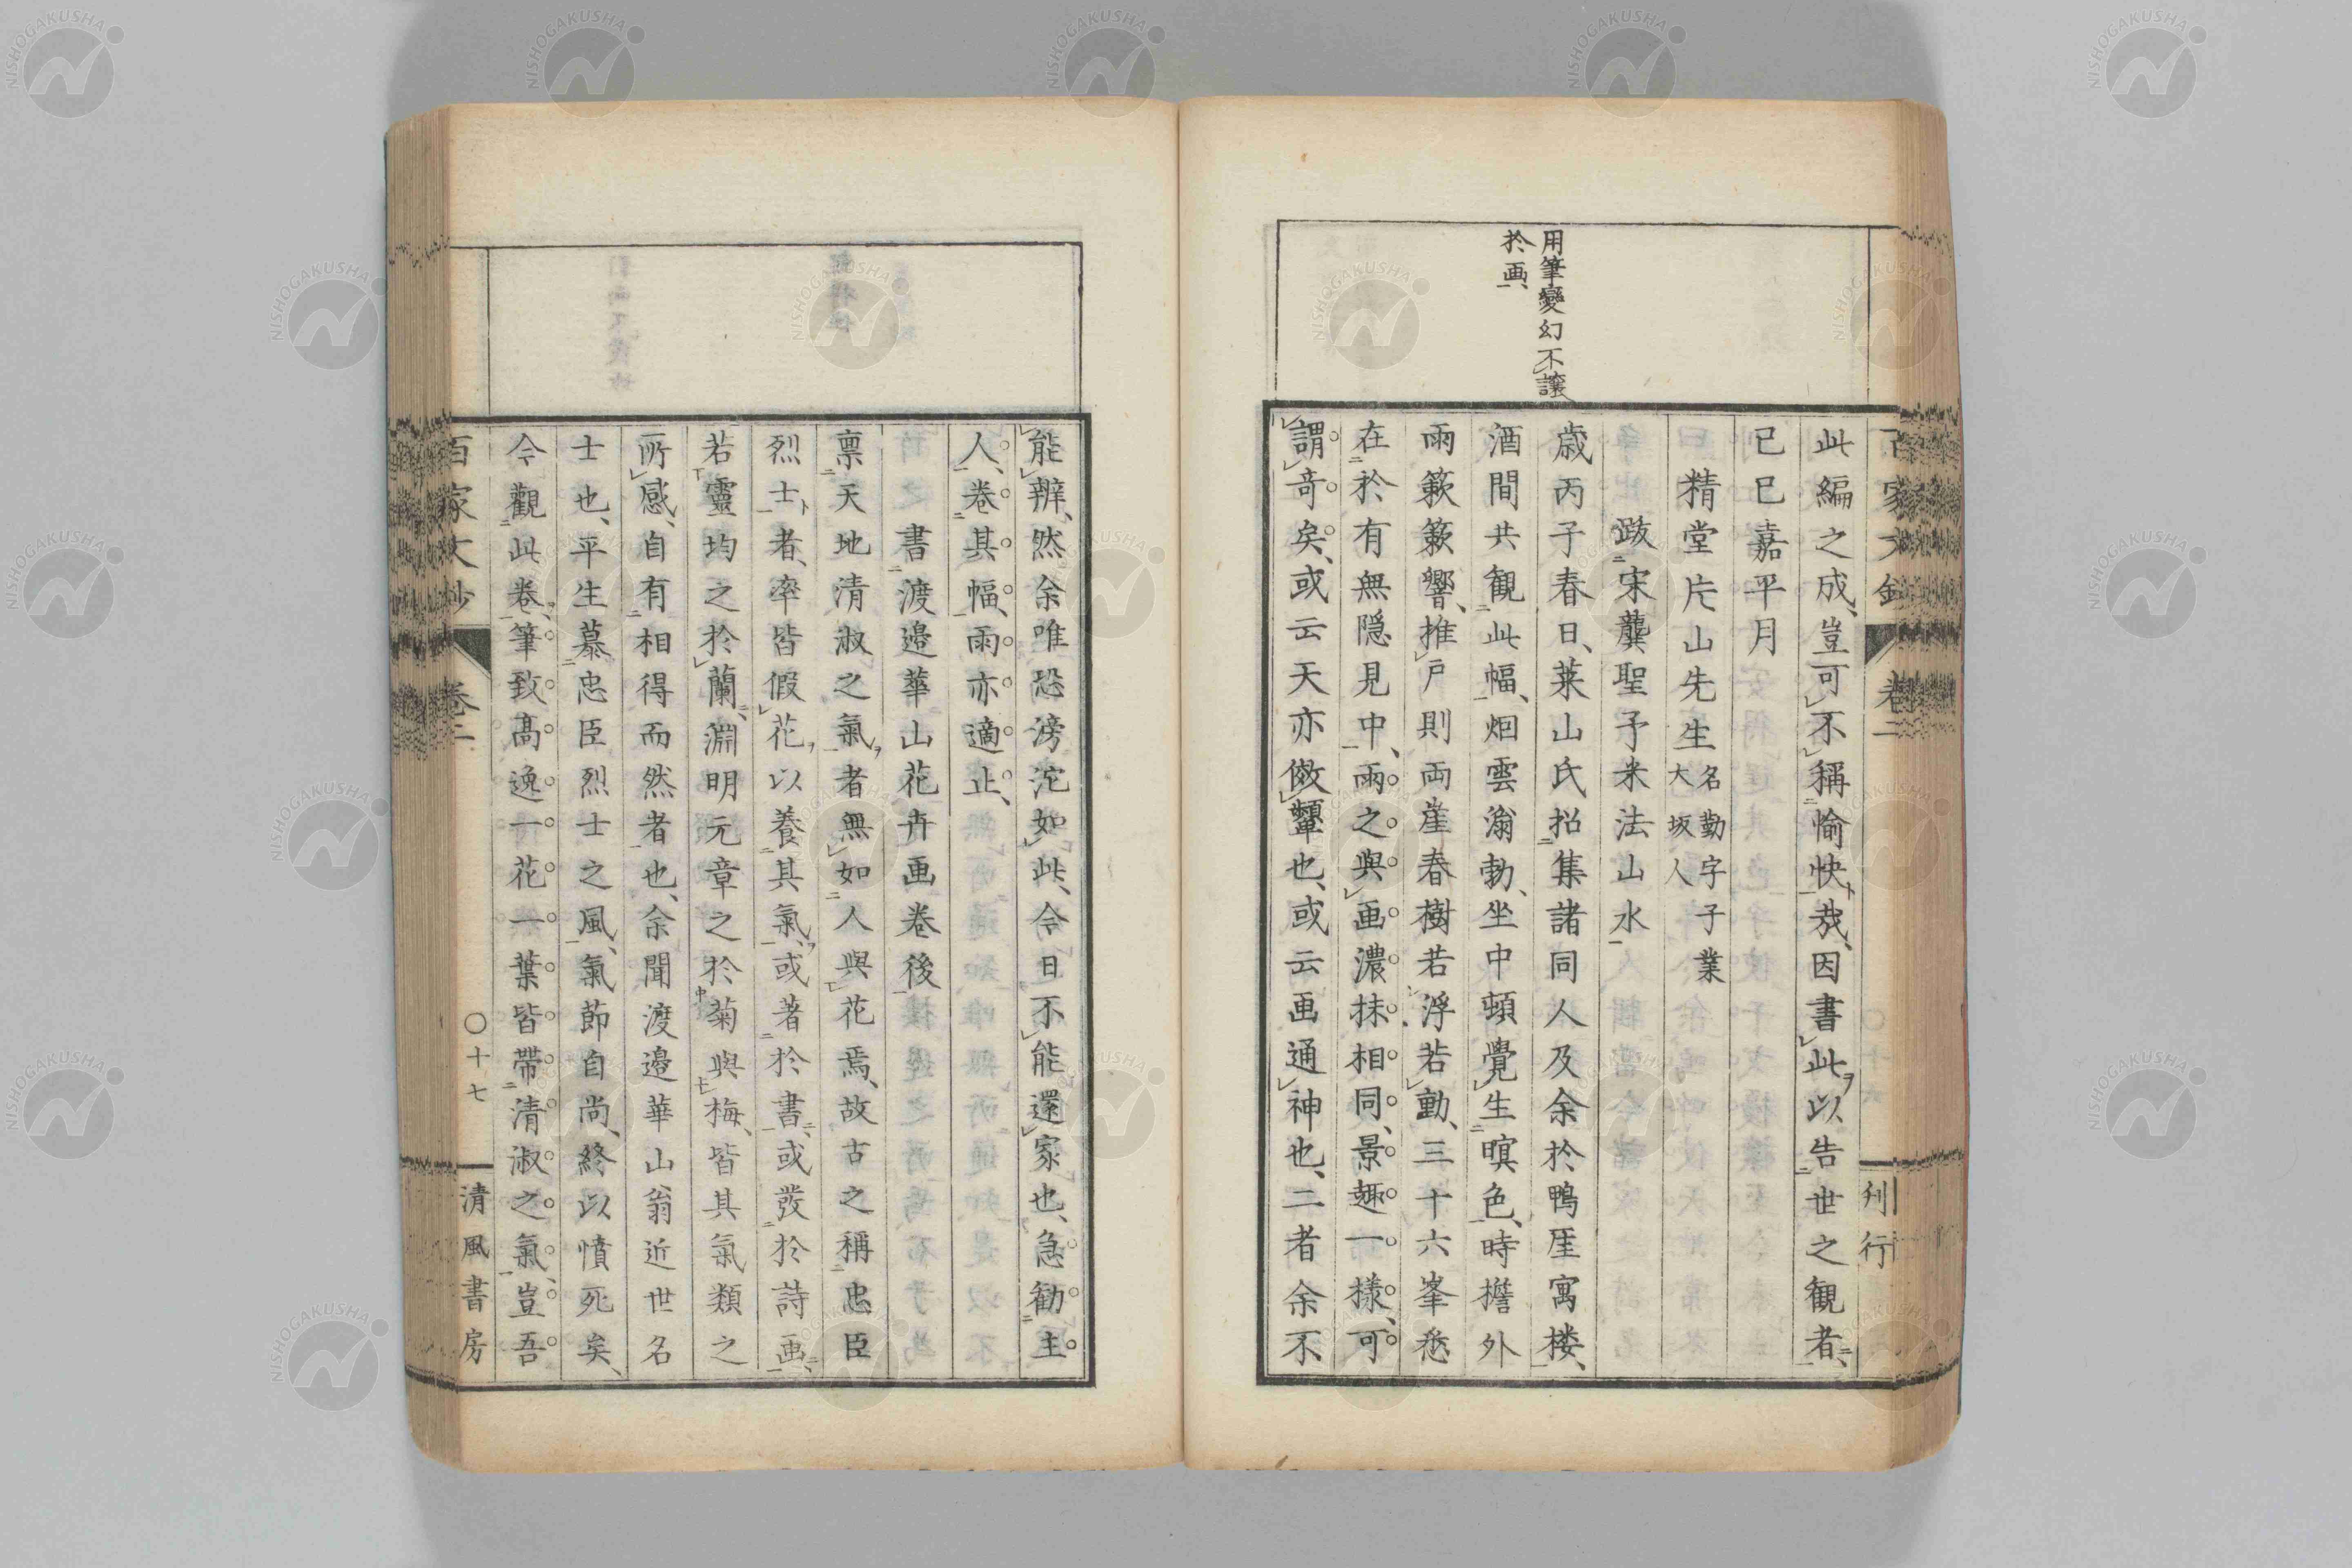 用筆變幻不讓
於画、
此編之成、豈可不稱愉快哉、因書此以告世之観者、
己巳嘉平月
精堂片山先生名勤字子業
大坂人
跋宋龔聖予米法山水
歳丙子春日、莱山氏招集諸同人及余於鴨厓寓楼、
酒間共観此幅、烟雲滃勃、坐中頓覺生暝色、時檐外
雨簌簌響、推戸則両崖春樹若浮若動、三十六峯悉
在於有無隠見中、雨之與画濃抹相同、景趣一様、可
謂奇矣、或云天亦傚顰也、或云画通神也、二者余不
刊行
能辨、然余唯恐滂沱如此、今日不能還家也、急勧主
人、卷其幅、雨亦適止、
書渡邉華山花卉画卷後
禀天地清淑之氣者無如人與花焉、故古之稱忠臣
烈士者、率皆假花以養其氣、或著於書、或發於詩画、
若靈均之於蘭、淵明元章之於菊與梅、皆其氣類之
所感、自有相得而然者也、余聞渡邉華山翁近世名
士也、平生慕忠臣烈士之風、氣節自尚、終以憤死矣、
今觀此卷、筆致高逸一花一葉皆帶清淑之氣、豈吾
百家文抄 卷二 〇十七 清風書房